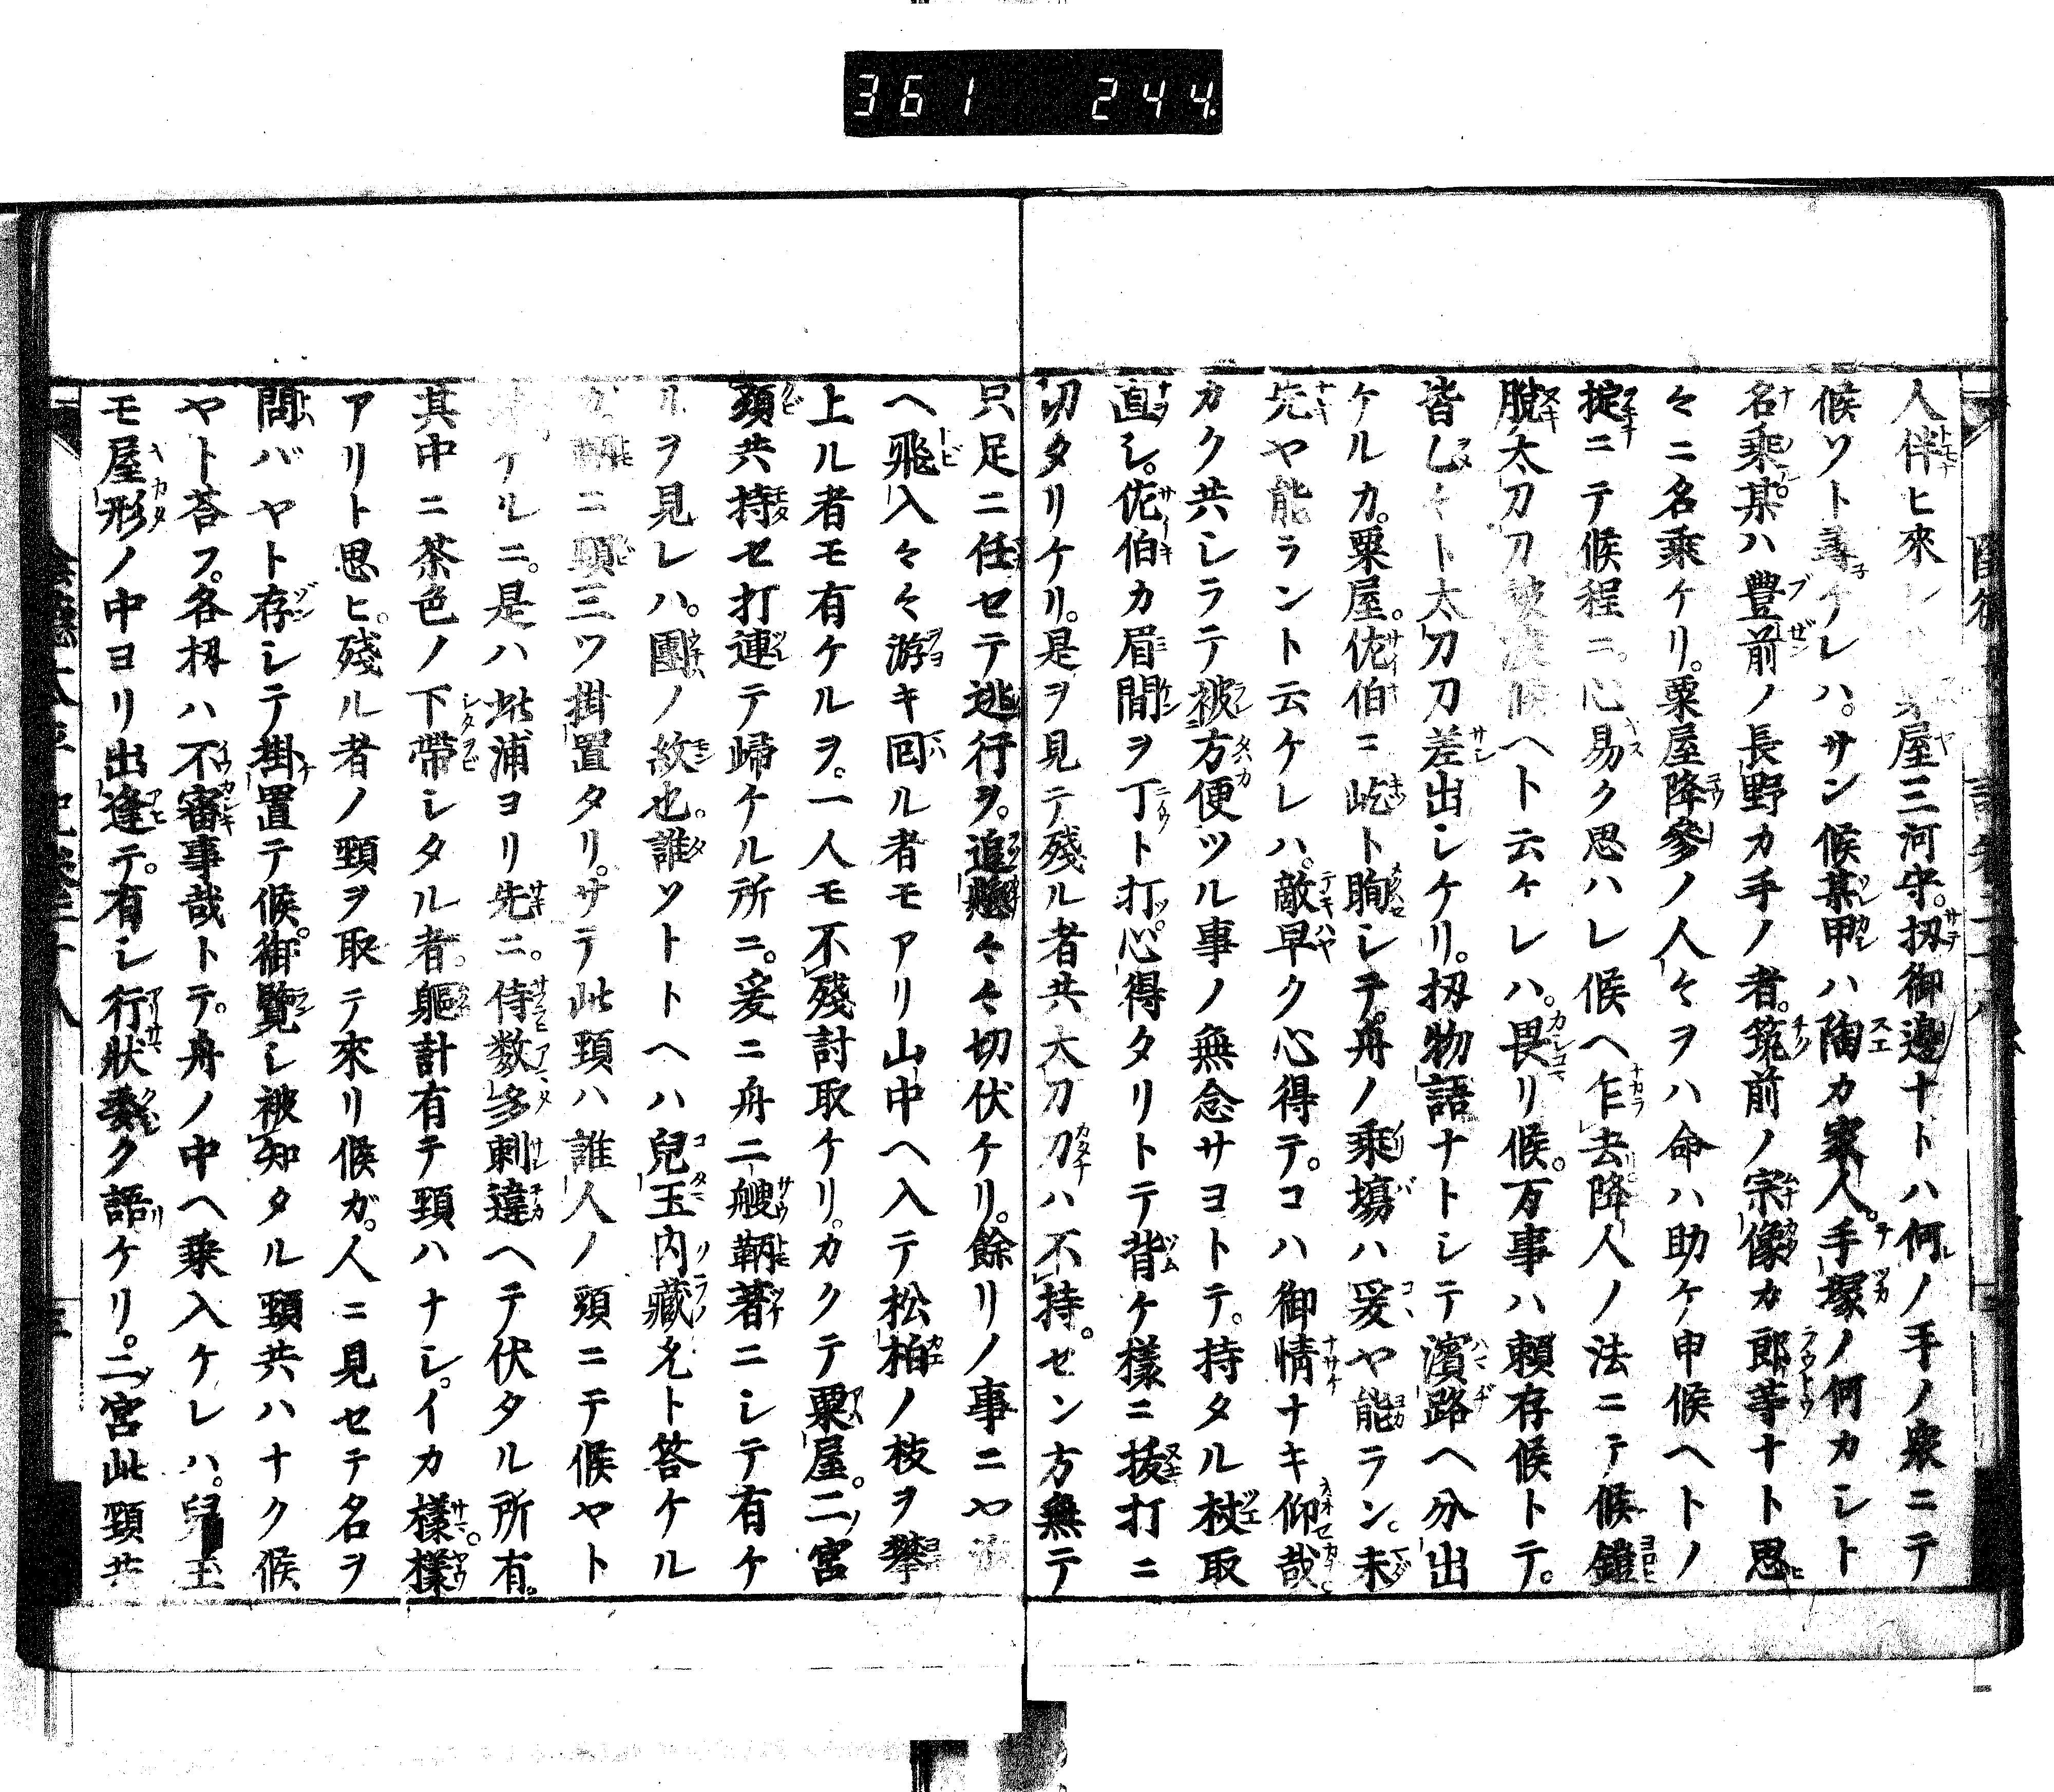 361 244
人伴ヒ來レ屋三河守。扨御邊ナトハ何ノ手ノ衆ニテ
候ソト尋ケレハ。サン候某甲ハ陶カ家人。手塚ノ何カシト
名乘。某ハ豊前ノ長野カ手ノ者。筑前ノ宗像カ郎等ナト思
々ニ名乘ケリ。粟屋降參ノ人々ヲハ命ハ助ケ申候ヘトノ
掟ニテ候程ニ。心易ク思ハレ候ヘ乍去降人ノ法ニテ候鎧
脫太刀刀被渡候ヘト云ケレハ。畏リ候。万事ハ賴存候トテ。
皆太刀刀差出シケリ。扨物語ナトシテ濱路ヘ分出
ケルカ。粟屋。佐伯ニ屹ト眴シテ。舟ノ乘塲ハ爰ヤ能ラン。未
先ヤ能ラント云ケレハ。敵早ク心得テ。コハ御情ナキ仰哉
カク共シラテ被方便ツル事ノ無念サヨトテ。持タル杖取
直シ。佐伯カ眉間ヲ丁ト打。心得タリトテ背ケ樣ニ拔打ニ
切タリケリ。是ヲ見テ殘ル者共太刀刀ハ不持。セン方無テ
只足ニ任セテ逃行ヲ。追懸々々切伏ケリ。餘リノ事ニヤ
ヘ飛入々々游キ囘ル者モアリ山中ヘ入テ松柏ノ枝ヲ攀
上ル者モ有ケルヲ。一人モ不殘討取ケリ。カクテ粟屋。二ノ宮
頸共持セ打連テ歸ケル所ニ。爰ニ舟二艘鞆著ニシテ有ケ
ルヲ見レハ。團ノ紋也。誰ソトトヘハ兒玉内藏允ト答ケル
ニ頸三ツ掛置タリ。サテ此頸ハ誰人ノ頸ニテ候ヤト
ケルニ。是ハ此浦ヨリ先ニ。侍数多刺違ヘテ伏タル所有。
其中ニ茶色ノ下帶シタル者。軀計有テ頸ハナシ。イカ樣樣
アリト思ヒ。殘ル者ノ頸ヲ取テ來リ候ガ。人ニ見セテ名ヲ
問バヤト存シテ掛置テ候。御覽シ被知タル頸共ハナク候
ヤト荅フ。各扨ハ不審事哉トテ。舟ノ中ヘ乘入ケレハ。兒玉
モ屋形ノ中ヨリ出逢テ。有シ行狀委ク語ケリ。二ノ宮此頸共